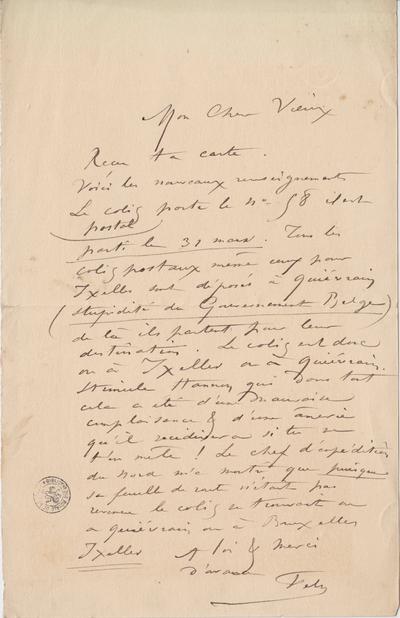 Mon Cher Vieux
Recu ta carte.
Voici les nouveaux renseignements
Le colis porte le n° 58 il est
postal
parti le 31 mars. Tous les
colis postaux même ceux pour
Ixelles sont déposés à Quiévrain
(stupidité du Gouvernement Belge)
de là ils partent pour leur
destination. Le colis est donc
ou à Ixelles ou à Quiévrain.
Stimule Hannon qui dans tout
cela a été d'un mauvaise
complaisance & d'une ânerie
qu'il recidivera si tu ne
t'en mele! Le chef d'expédition
du Nord m'a montré que puisque
sa feuille de route n'était pas
revenue le colis se trouvait ou
a Quiévrain ou à Bruxelles
Ixelles A toi & merci
d'avance